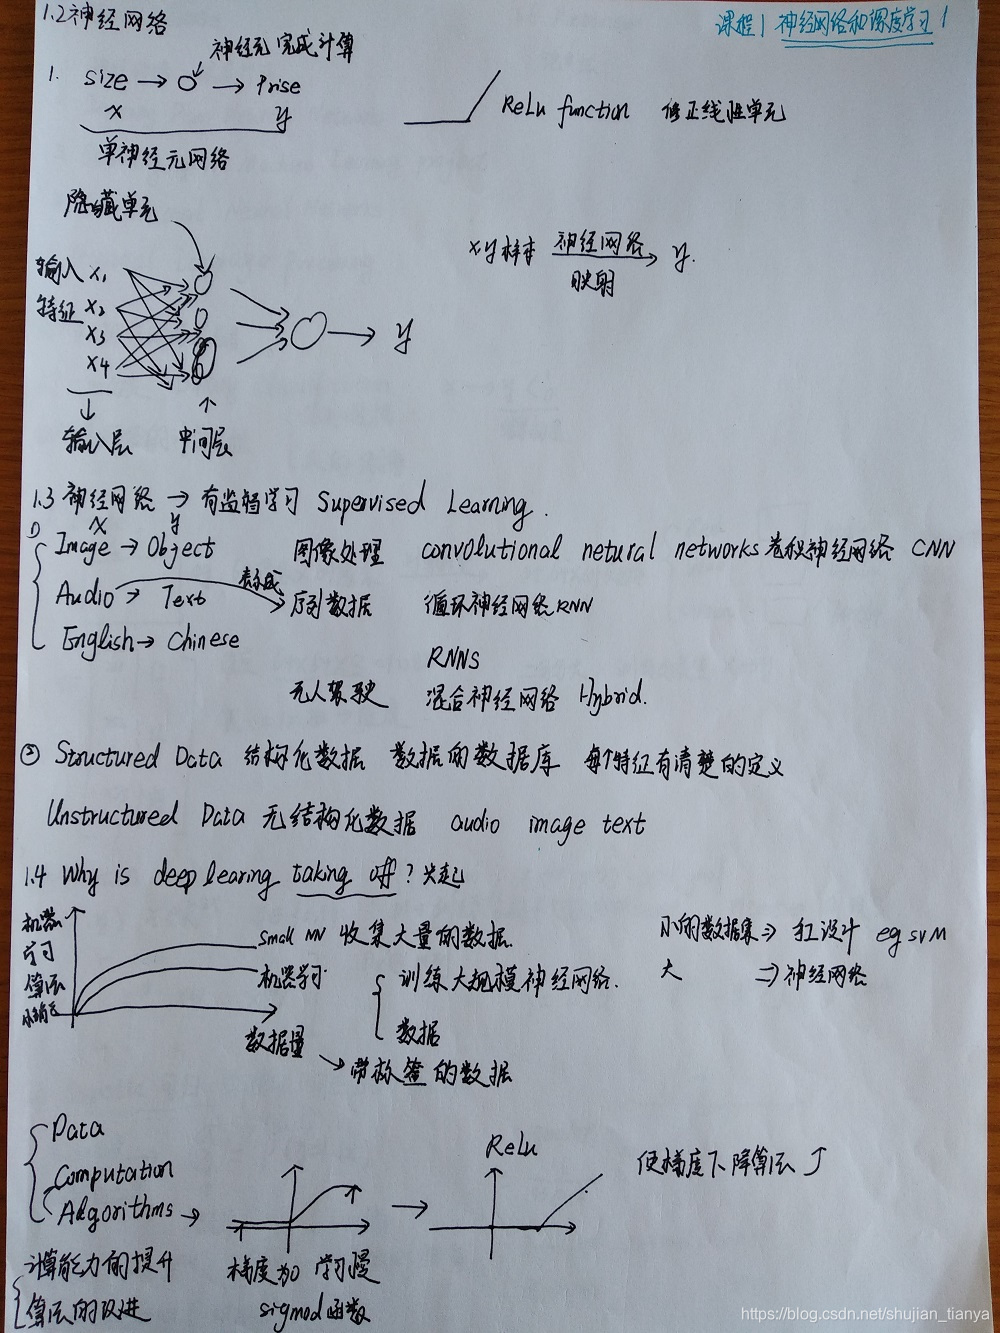 1.2神经网络
课程1 神经网络和深度学习 1
神经元 完成计算
1. size → → Prise
x y
单神经元网络
ReLu function 修正线性单元
隐藏单元
xy样本 神经网络 y.
映射
输入 x1
特征 x2
x3
x4
y
输入层 中间层
1.3 神经网络 → 有监督学习 Supervised Learning.
x y
① Image → Object 图像处理 convolutional netural networks 卷积神经网络 CNN
Audio → Text 表示成 序列数据 循环神经网络RNN
English → Chinese
RNNS
无人驾驶 混合神经网络 Hybrid.
② Structured Data 结构化数据 数据的数据库 每个特征有清楚的定义
Unstructured Data 无结构化数据 audio image text
1.4 Why is deep learing taking off? 兴起
机器
学习
算法
small NN 收集大量的数据.
机器学习
训练大规模神经网络.
数据
数据量
带标签的数据
小的数据集 ⇒ 手工设计 eg svM
大 ⇒ 神经网络
Data
Computation
Algorithms →
计算能力的提升
算法的改进
梯度为0 学习慢
sigmod函数
ReLu
使梯度下降算法↑
https://blog.csdn.net/shujian_tianya